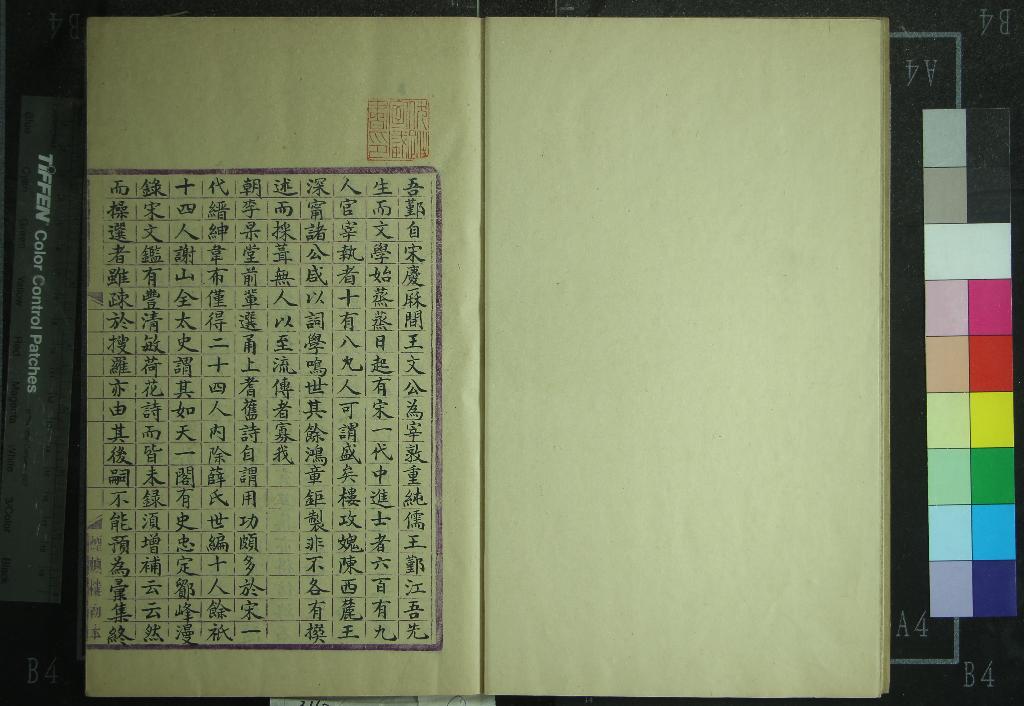 吾鄞自宋慶厤間王文公為宰敦重純儒王鄞江吾先
生而文學始蒸蒸日起有宋一代中進士者六百有九
人官宰執者十有八九人可謂盛矣樓攻媿陳西麓王
深甯諸公咸以詞學鳴世其餘鴻章鉅製非不各有撰
述而採葺無人以至流傳者寡我
朝李杲堂前輩選甬上耆舊詩自謂用功頗多於宋一
代縉紳韋布僅得二十四人內除薛氏世編十人餘祇
十四人謝山全太史謂其如天一閣有史忠定鄮峰漫
錄宋文鑑有豐清敏荷花詩而皆未録須增補云云然
而操選者雖疎於搜羅亦由其後嗣不能預為彙集終
TIFFEN Color Control Patches
B4
A4
B4
B4
A4
B4